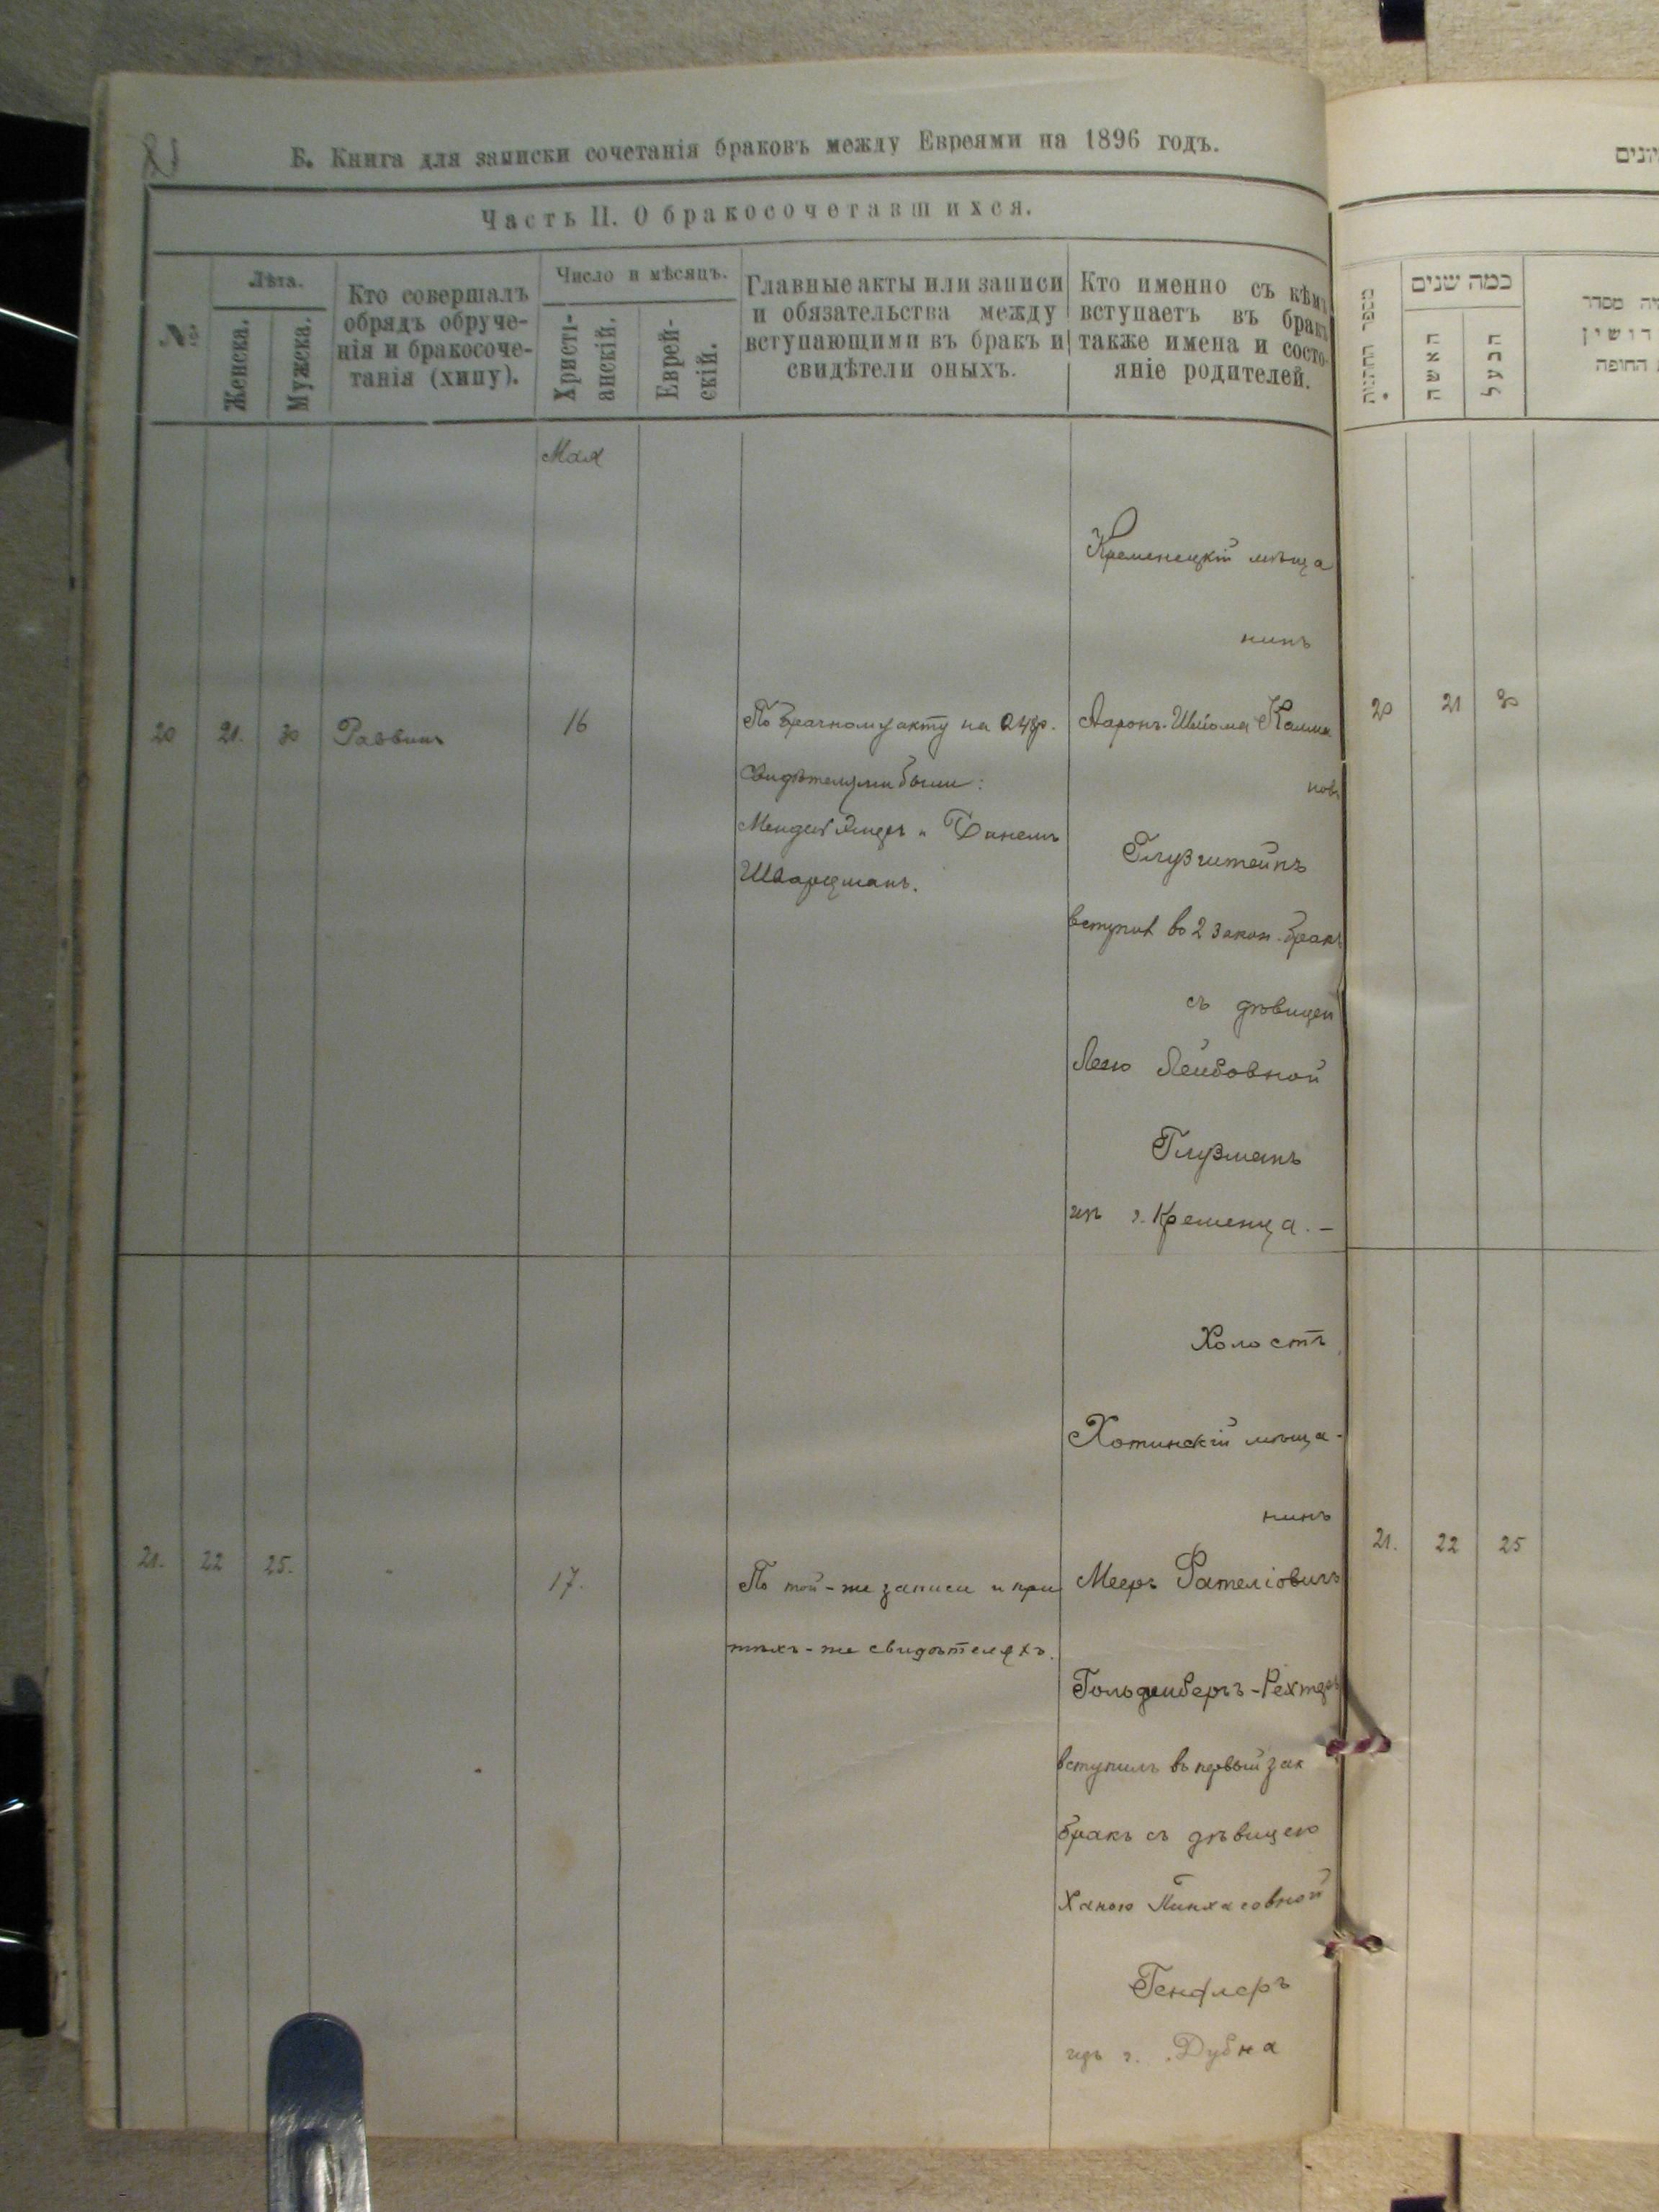 Б. Книга для записки сочетанія браковъ между Евреями на 1896 годъ.
Часть II. О бракосочетавшихся.
№
Лѣта.
Женска.
Мужска.
Кто совершалъ
обрядъ обруче-
нія и бракосоче-
танія (хипу).
Число и мѣсяцъ.
Христі-
анскій.
Еврей-
скій.
Главные акты или записи
и обязательства между
вступающими въ бракъ и
свидѣтели оныхъ.
Кто именно съ кѣмъ
вступаетъ въ бракъ
также имена и состо-
яніе родителей.
Мая
20 21. 30 Раввинъ 16
По брачному акту на 24 р.
Свидѣтелями были:
Шварцманъ.
Кременецкій мѣща
нинъ
Ааронъ-Шлома Калма
новъ
Глузштейнъ
вступил во 2 закон. бракъ
съ дѣвицей
Леею Лейбовной
Глузманъ
изъ г. Кременца. –
21. 22 25. " 17.
По той-же записи и при
тѣхъ-же свидѣтеляхъ.
Холостъ
Хотинскій мѣща-
нинъ
Мееръ
вступилъ въ первый зак
бракъ съ дѣвицею
Ханою Пинхасовной
Гендлеръ
изъ г. Дубна
כמה שנים
האשה
הבעל
מסדר
החופה
20 21 30
21. 22 25